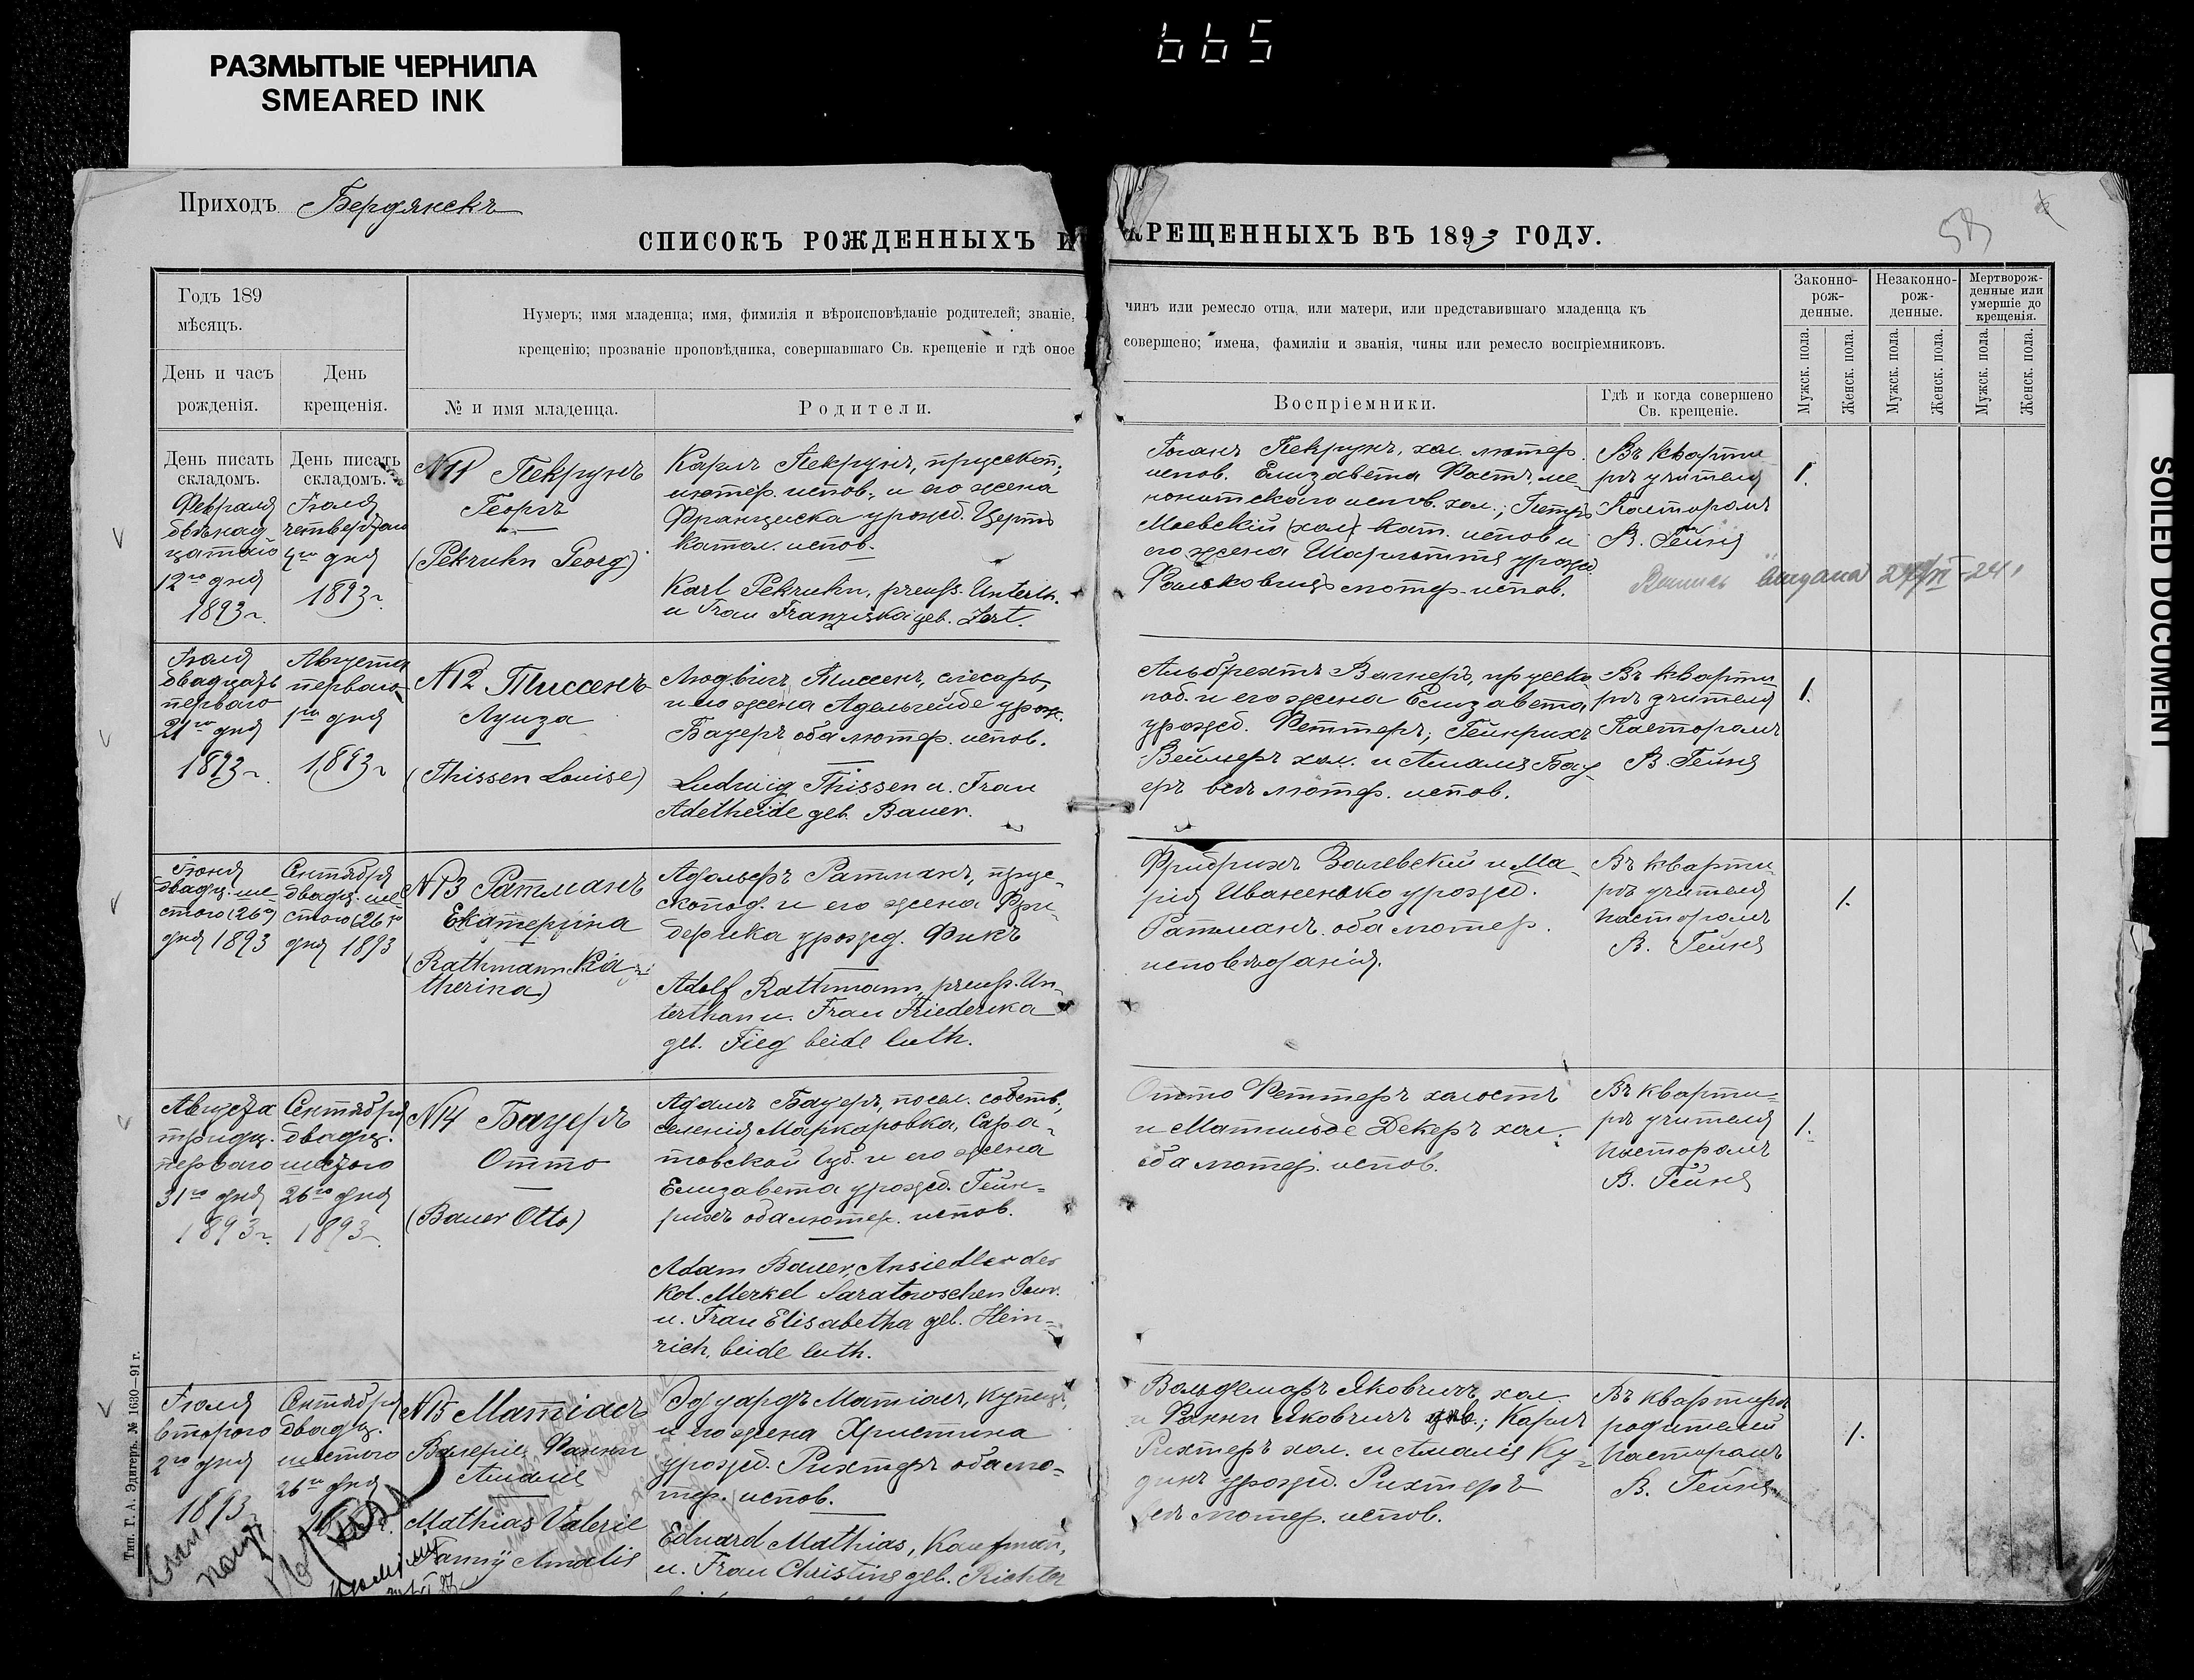 665
РАЗМЫТЫЕ ЧЕРНИЛА
SMEARED INK
SOILED DOCUMENT
Приходъ Бердянскъ
СПИСОКЪ РОЖДЕННЫХЪ И КРЕЩЕННЫХЪ ВЪ 1893 ГОДУ.
Годъ 189
мѣсяцъ.
День и часъ
рожденія.
День
крещенія.
Нумеръ; имя младенца; имя, фимилія и вѣроисповѣданіе родителей; званіе, чинъ или ремесло отца, или матери, или представившаго младенца къ
крещенію; прозваніе проповѣдника, совершавшаго Св. крещеніе и гдѣ оное совершено; имена, фамиліи и званія, чины или ремесло воспріемниковъ.
№ и имя младенца.
Родители.
Воспріемники.
Гдѣ и когда совершено
Св. крещеніе.
Законно-
рож-
денные.
Незаконно-
рож-
денные.
Мертворож-
денные или
умершіе до
крещенія.
Мужск. пола.
Женск. пола.
Мужск. пола.
Женск. пола.
Мужск. пола.
Женск. пола.
День писать
складомъ.
Февраля
двѣнад
цатаго
12го дня
1893 г.
День писать
складомъ.
Іюля
четвертаго
4го дня
1893 г.
N 11 Пекрунъ
Георгъ
(Pekruhn Georg)
Карлъ Пекрунъ, прусскоп.
лютер. испов., и его жена
Франциска урожд. Цертъ
катол. испов.
Karl Pekruhn, preuß. Unterth.
u Frau Franziska geb. Zert.
Іоганъ Пекрунъ, хол. лютер.
испов. Елизавета Фастъ ме-
нонитскаго испов. хол.; Петръ
Маевскій (хол) кат. испов и
его жена Шарлотта урожд.
лютер. испов.
Въ кварти
рѣ учителя
Пасторомъ
В. Гейне
выдана 24
1.
Іюля
двадцать
перваго
21го дня
1893 г.
Августа
перваго
1го дня
1893 г.
N 12 Тиссенъ
Луиза
(Thissen Louise)
Людвигъ Тиссенъ, слесарь,
и его жена Адельгейде урож.
Бауеръ оба лютер. испов.
Ludwig Thissen u. Frau
Adelheide geb. Bauer.
Альбрехтъ Вагнеръ, прусско
под. и его жена Елизавета
урожд. Феттеръ; Гейнрихъ
Веймеръ хол. и Амалія Бау
еръ всѣ лютер. испов.
Въ кварти
рѣ учителя
Пасторомъ
В. Гейне
1.
Іюня
двадц. ше-
стого (26го)
дня 1893
Сентября
двадц. ше
стого (26го
дня 1893
N 13 Ратманъ
Екатерина
(Rathmann Ka-
therina)
Адольфъ Ратманъ, прус-
скопод. и его жена Фри-
дерика урожд. Фикъ
Adolf Rathmann, preuß. Un-
terthan u. Frau Friederika
geb. Fieg beide luth.
Фридрихъ Залевскій и Ма-
рія Иваненько урожд.
Ратманъ. оба лютер.
исповѣданія.
Въ кварти-
рѣ учителя
пасторомъ
В. Гейне
1.
Августа
тридц.
перваго
31го дня
1893 г.
Сентября
двадц.
шестого
26го дня
1893
N 14 Бауеръ
Отто
(Bauer Otto)
Адамъ Бауеръ, посел. собств.,
селенія Макаровка, Сара-
товской губ. и его жена
Елизавета урожд. Гейн-
рихъ оба лютер. испов.
Adam Bauer, Ansiedler der
Kol. Merkel Saratowschen Gouv.
u. Frau Elisabetha geb. Hein-
rich, beide luth.
Отто Феттеръ холостъ
и Матильде Декеръ хол.
оба лютер. испов.
Въ кварти-
рѣ учителя
пасторомъ
В. Гейне
1.
Іюля
второго
2го дня
1893
Сентября
двадц.
шестого
26го дня
N 15 Матіасъ
Валеріе Фанни
Амаліе
Mathias Valerie
Fanny Amalie
Эдуардъ Матіасъ, купецъ,
и его жена Христина
урожд. Рихтеръ оба лю-
тер. испов.
Eduard Mathias, Kaufman,
u. Frau Christine geb. Richter
Вольдемаръ Яковчичъ, хол.
и Фанни Яковчичъ; Карлъ
Рихтеръ хол. и Амалія Ку-
динъ урожд. Рихтеръ
всѣ лютер. испов.
Въ квартирѣ
родителей
пасторомъ
В. Гейне
1.
Тип. Г. А. Эдигеръ. № 1630—91 г.